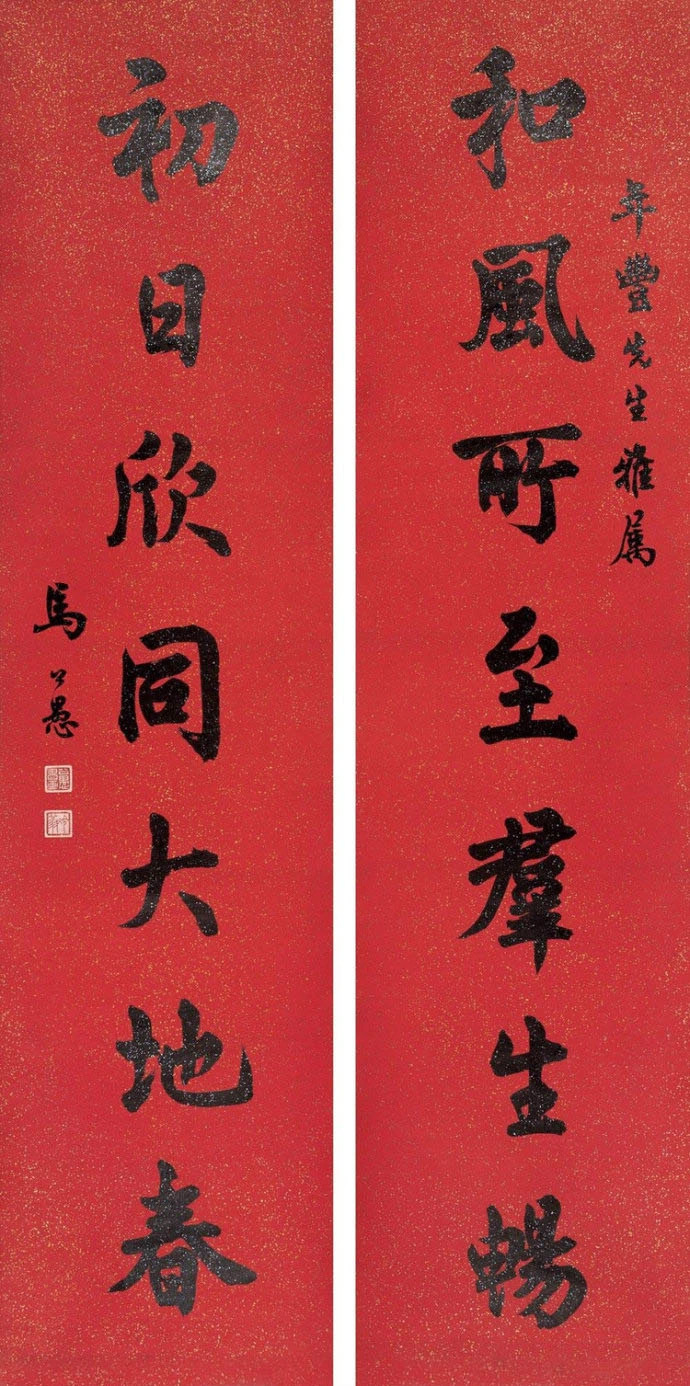 年豐先生雅属
和風所至羣生暢
初日欣同大地春
馬公愚